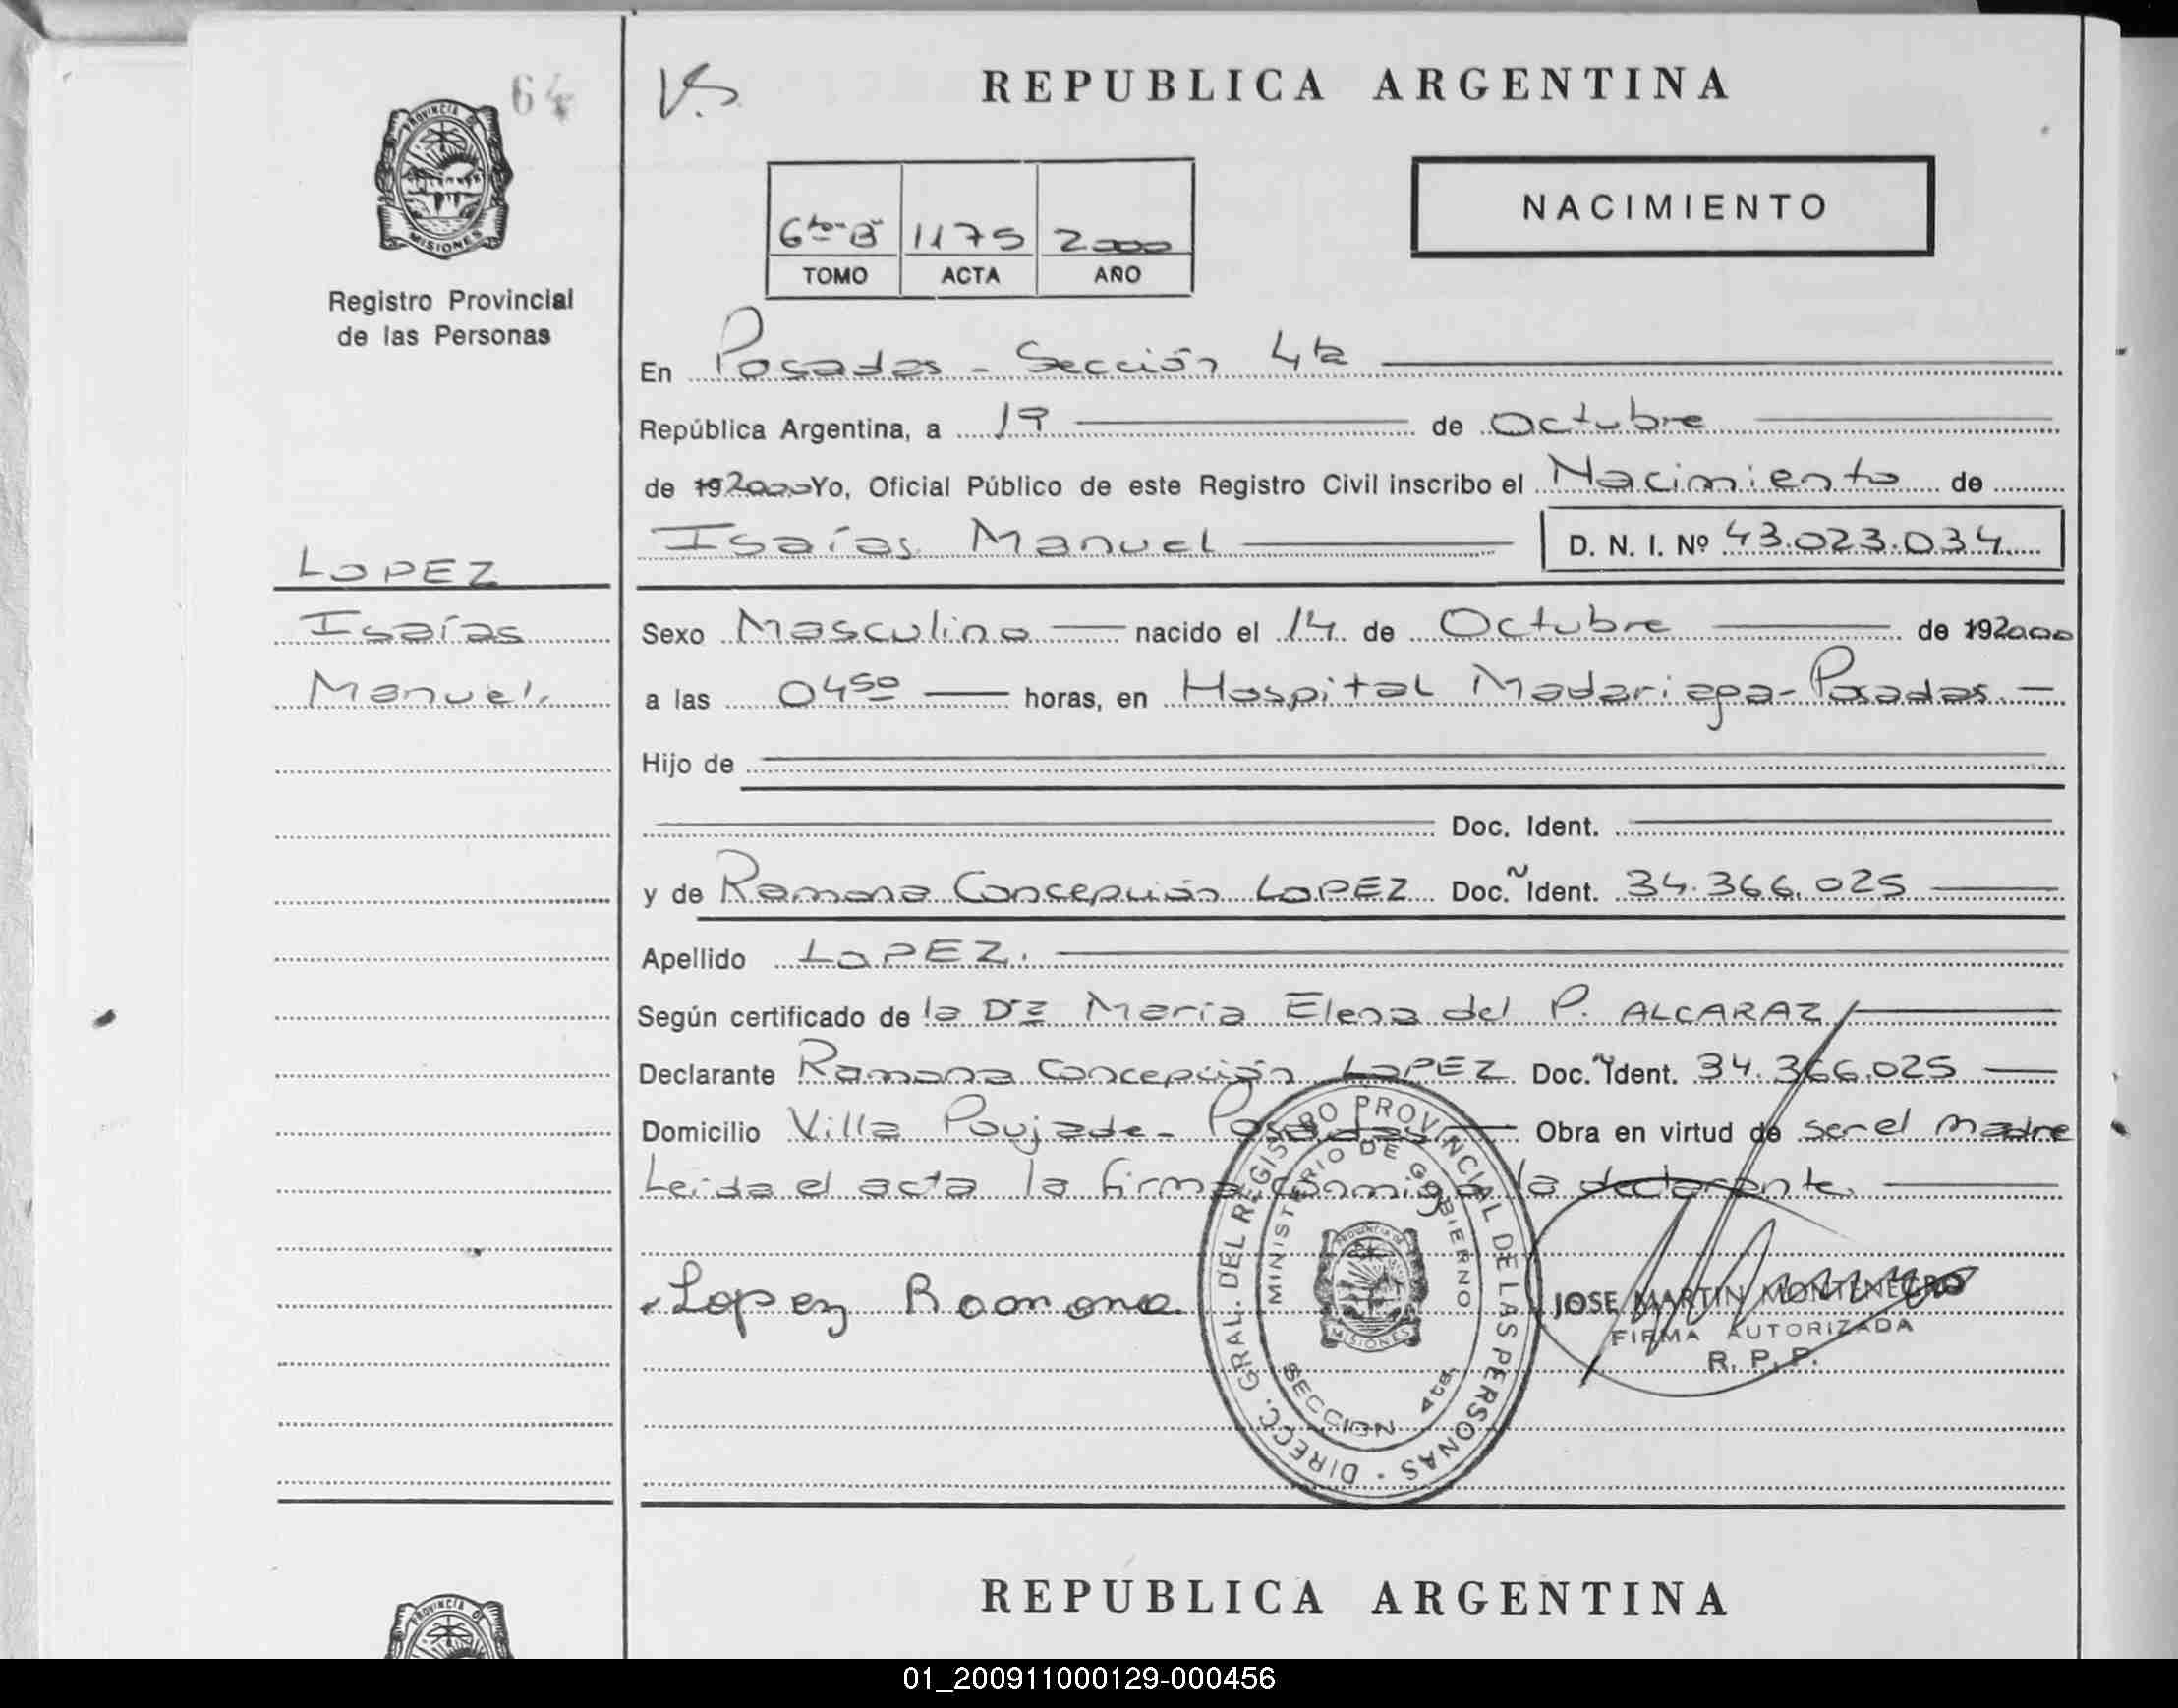 64
Vs.
REPUBLICA ARGENTINA
PROVINCIA DE
MISIONES
Registro Provincial
de las Personas
6to-B 1175 2000
TOMO ACTA AÑO
NACIMIENTO
En Posadas - Sección 4ta
República Argentina, a 19 de Octubre
de 192000 Yo, Oficial Público de este Registro Civil inscribo el Nacimiento de
Isaías Manuel D. N. I. Nº 43.023.034
LOPEZ
Isaías
Manuel
Sexo Masculino nacido el 14 de Octubre de 192000
a las 0450 horas, en Hospital Madariaga - Posadas.
Hijo de
Doc. Ident.
y de Ramona Concepción LOPEZ Doc. Ident. 34.366.025
Apellido LOPEZ.
Según certificado de la Dra María Elena del P. ALCARAZ
Declarante Ramona Concepción LOPEZ Doc. Ident. 34.366.025
Domicilio Villa Poujade - Posadas Obra en virtud de ser el madre
Leida el acta la firma conmigo la declarante.
Lopez Ramona
DIRECC. GRAL. DEL REGISTRO PROVINCIAL DE LAS PERSONAS
MINISTERIO DE GOBIERNO
MISIONES
SECCION 4ta.
JOSE MARTIN MONTENEGRO
FIRMA AUTORIZADA
R. P. P.
REPUBLICA ARGENTINA
PROVINCIA DE
01_200911000129-000456